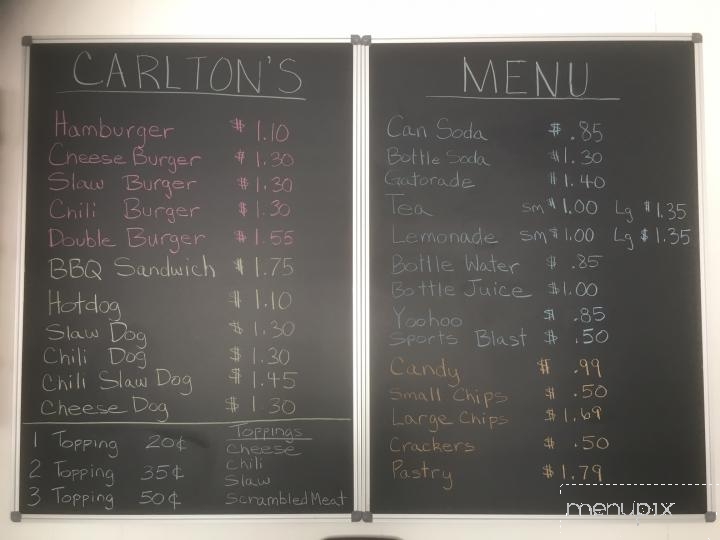 CARLTON'S
Hamburger $ 1.10
Cheese Burger $ 1.30
Slaw Burger $ 1.30
Chili Burger $ 1.30
Double Burger $ 1.55
BBQ Sandwich $ 1.75
Hotdog $ 1.10
Slaw Dog $ 1.30
Chili Dog $ 1.30
Chili Slaw Dog $ 1.45
Cheese Dog $ 1.30
1 Topping 20¢
2 Topping 35¢
3 Topping 50¢
Toppings
Cheese
Chili
Slaw
Scrambled Meat
MENU
Can Soda $ .85
Bottle Soda $1.30
Gatorade $ 1.40
Tea sm $1.00 Lg $1.35
Lemonade sm $1.00 Lg $1.35
Bottle Water $ .85
Bottle Juice $1.00
Yoohoo $ .85
Sports Blast $ .50
Candy $ .99
Small Chips $ .50
Large Chips $1.69
Crackers $ .50
Pastry $1.79
menupix